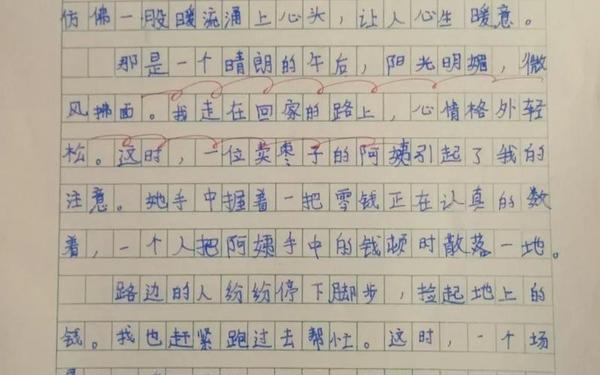 仿佛一股暖流涌上心头，让人心生暖意。
那是一个晴朗的午后，阳光明媚，微
风拂面。我走在回家的路上，心情格外轻
松。这时，一位卖枣子的阿姨引起了我的
注意。她手中握着一把零钱正在认真的数
着，一个人把阿姨手中的钱顿时散落一地。
路边的人纷纷停下脚步，捡起地上的
钱。我也赶紧跑过去帮忙。这时，一个场